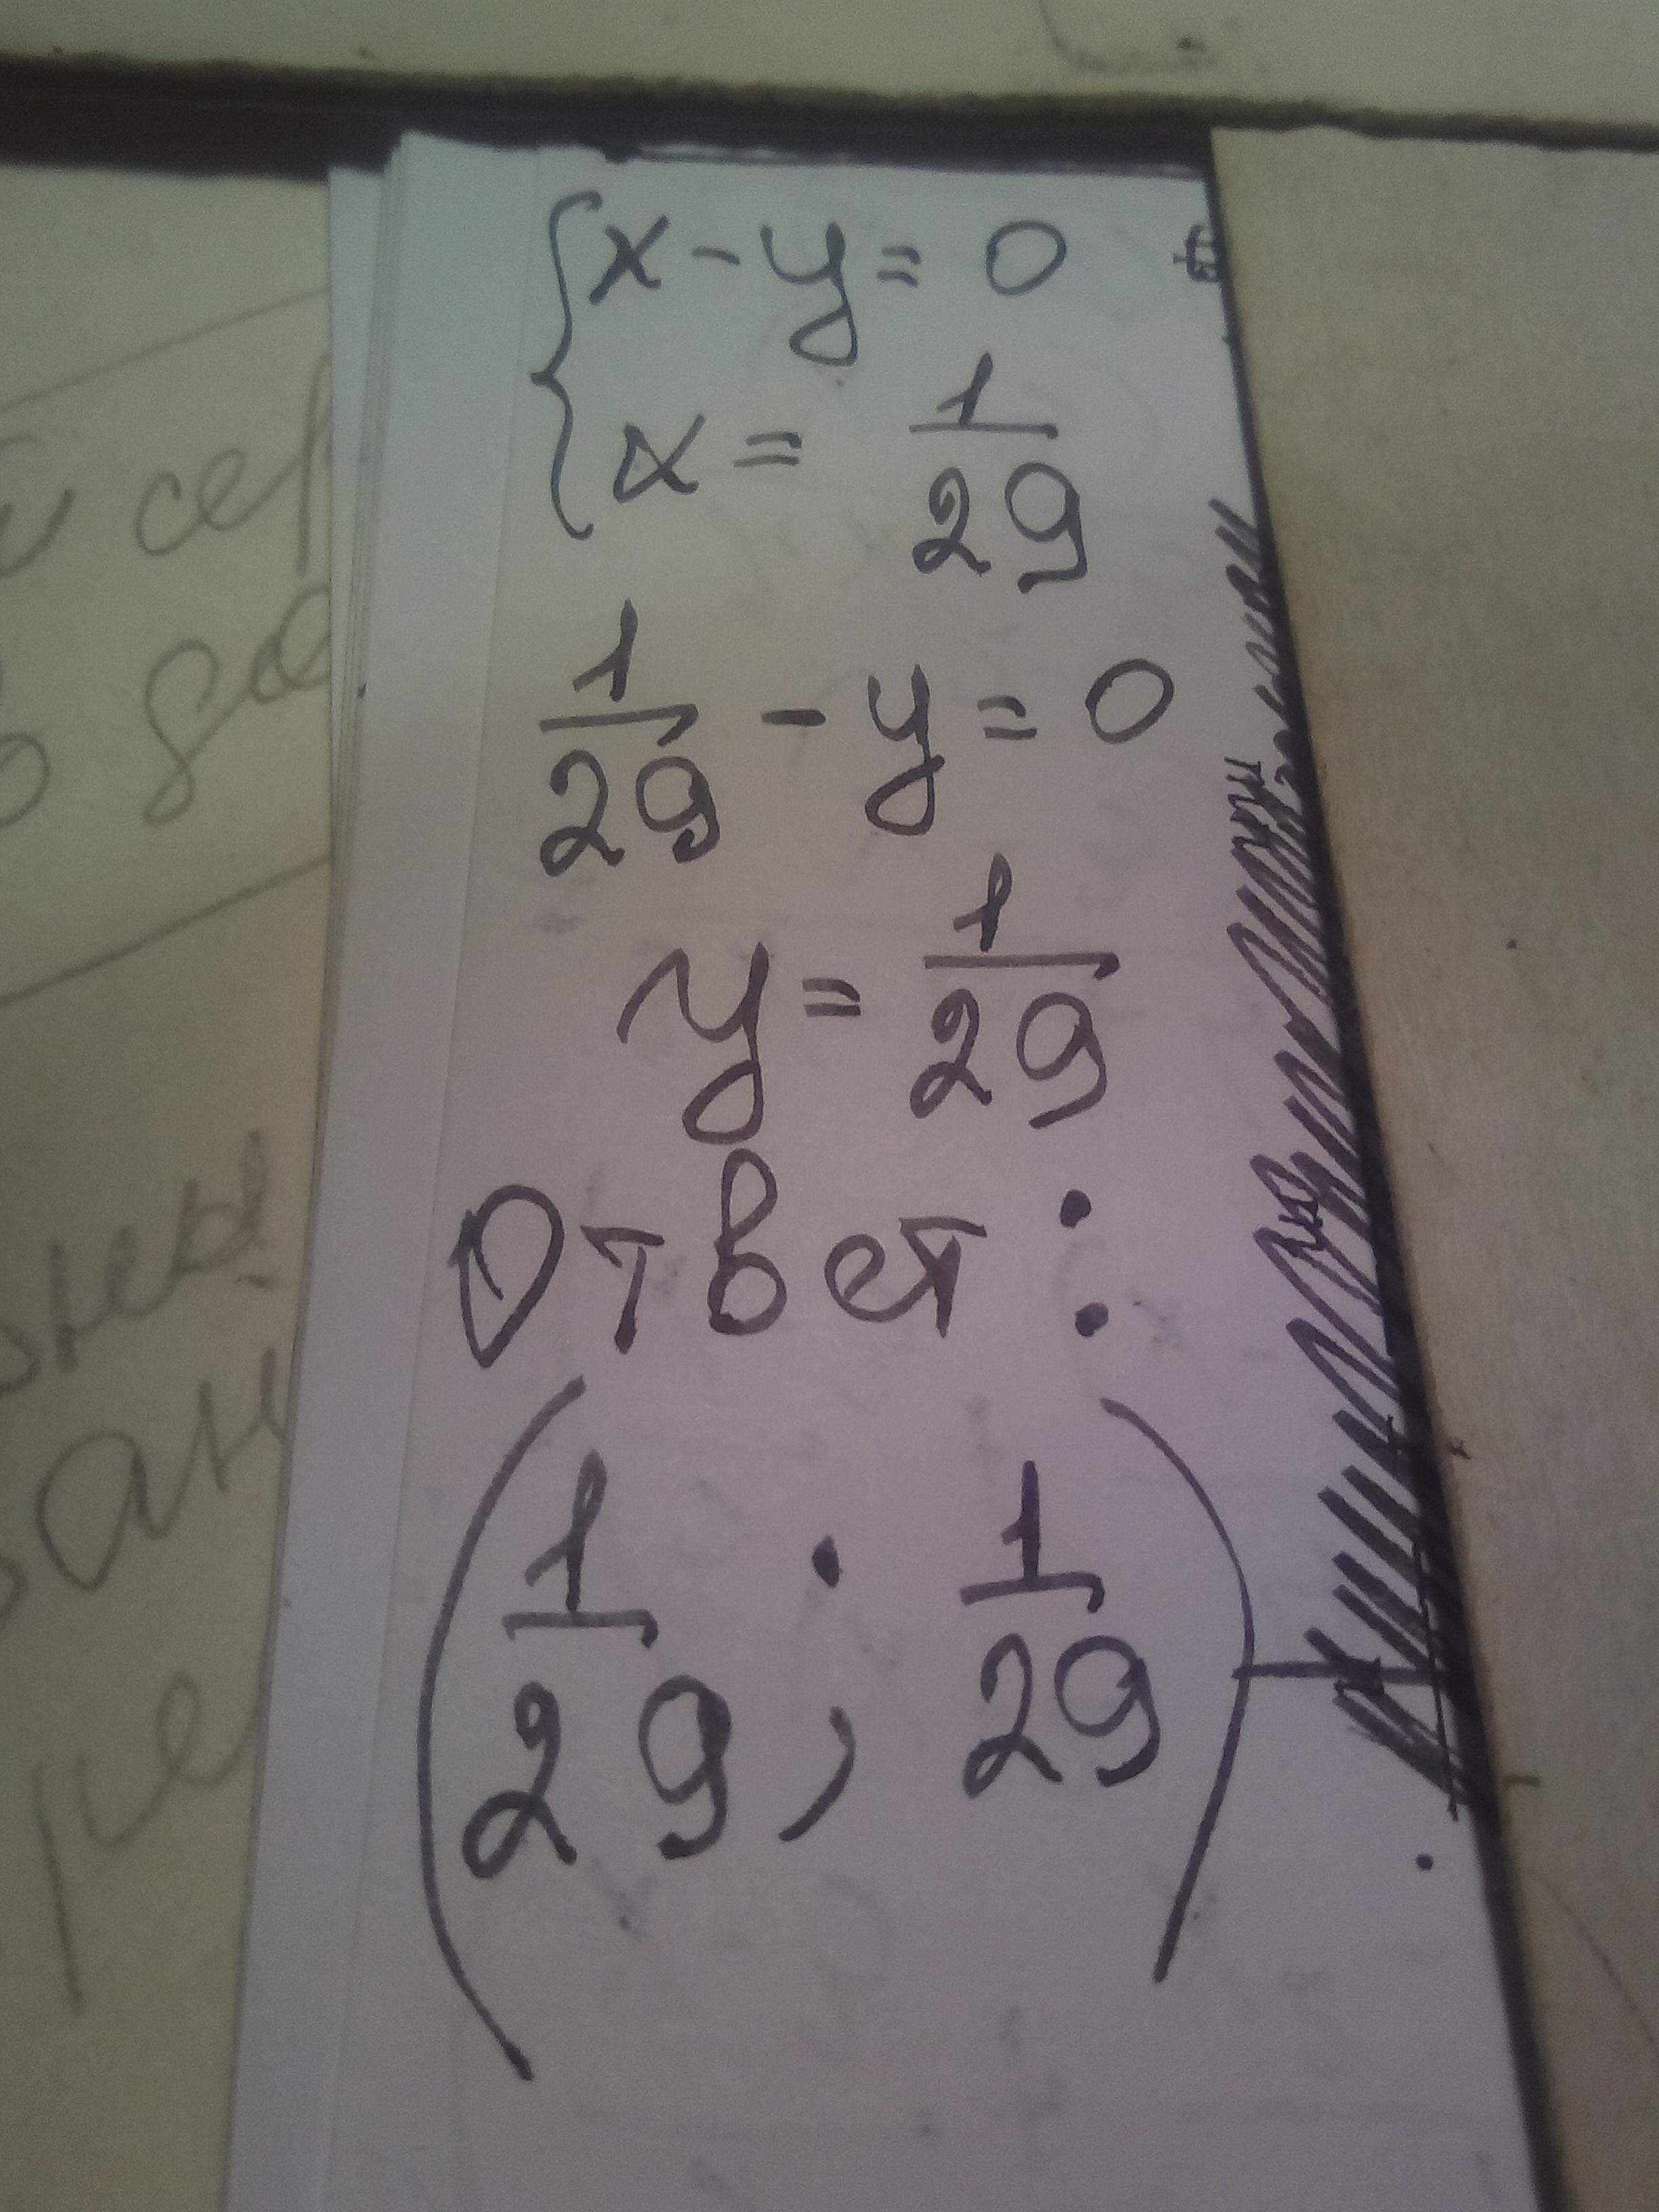 { x - y = 0
x = 1/29
1/29 - y = 0
y = 1/29
Ответ:
(1/29 ; 1/29)